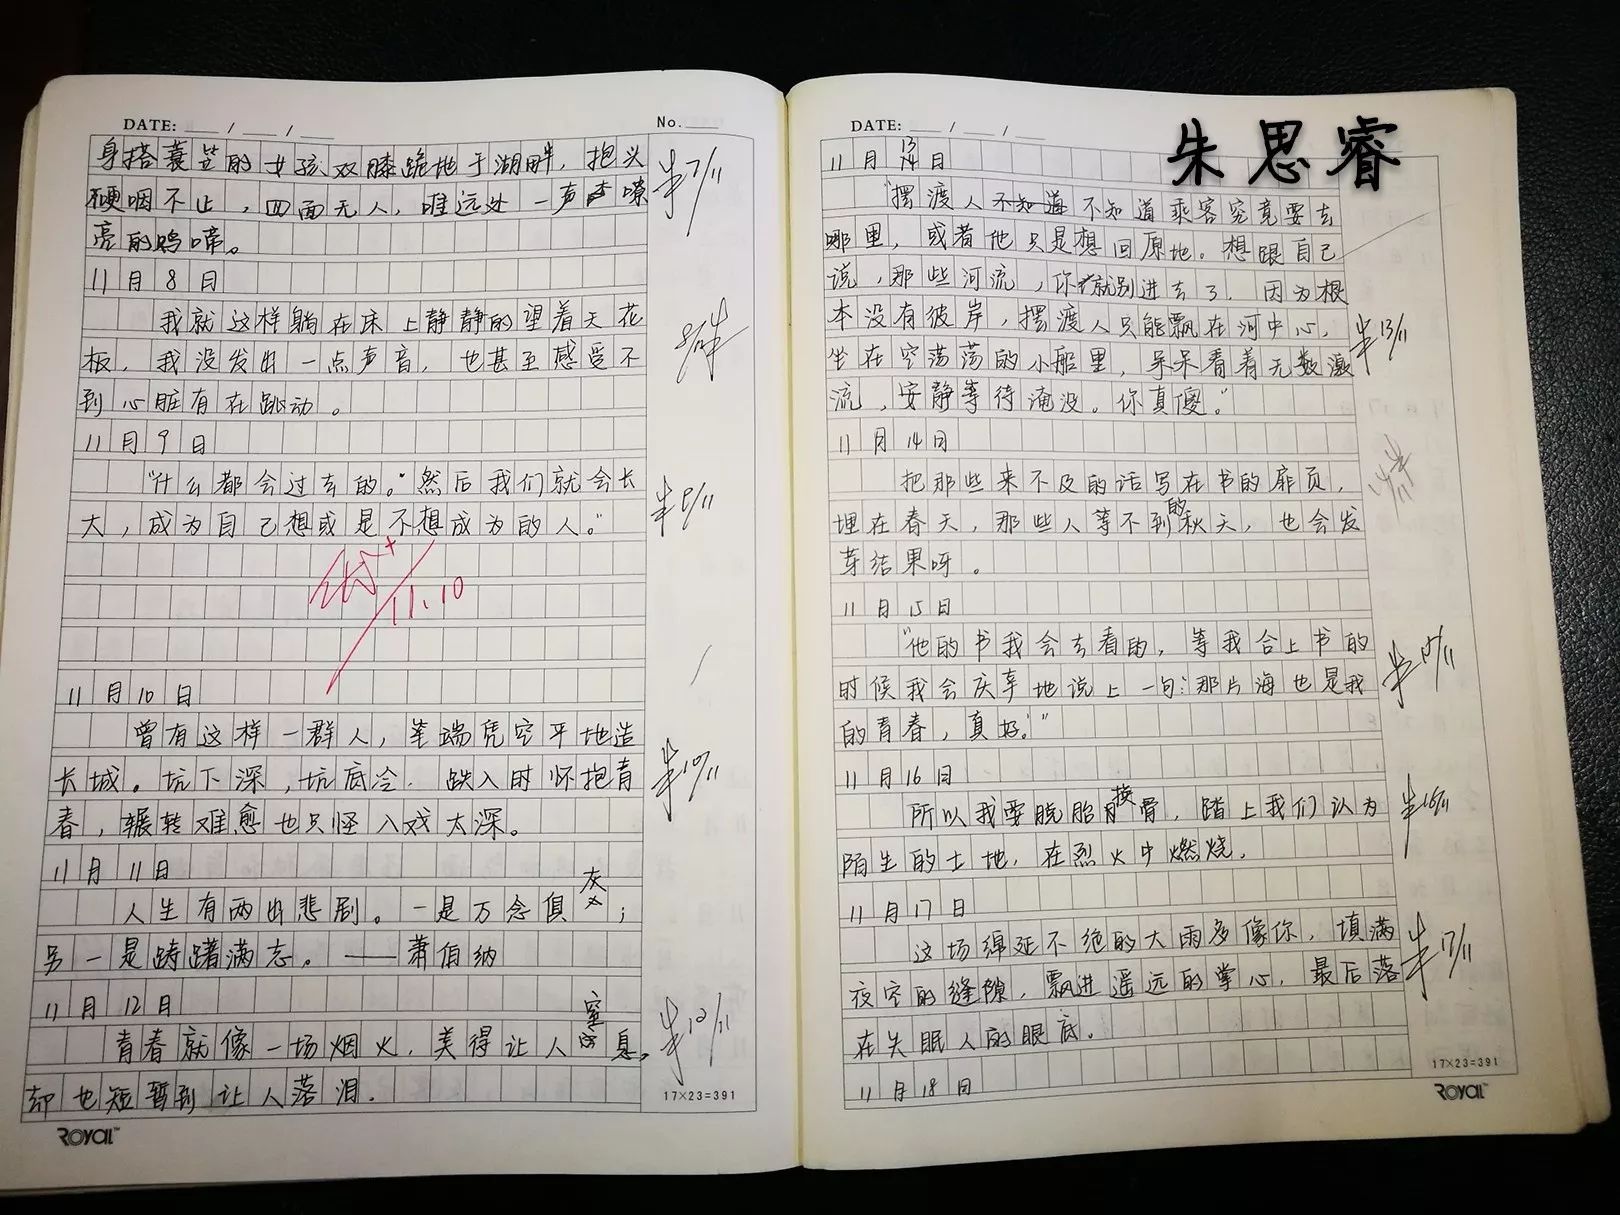 DATE: / /
No.
身搭蓑笠的女孩双膝跪地于湖畔，抱头
哽咽不止，四面无人，唯远处一声嘹
亮的鸣啼。
11月8日
我就这样躺在床上静静的望着天花
板，我没发出一点声音，也甚至感受不
到心脏有在跳动。
11月9日
“什么都会过去的。”然后我们就会长
大，成为自己想或是不想成为的人。”
11.10
11月10日
曾有这样一群人，笔端凭空平地造
长城。坑下深，坑底冷．跌入时怀抱青
春，辗转难愈也只怪入戏太深。
11月11日
人生有两出悲剧。一是万念俱灰；
另一是踌躇满志。——萧伯纳
11月12日
青春就像一场烟火，美得让人窒息，
却也短暂到让人落泪．
17×23=391
ROYAL™
DATE: / /
朱思睿
11月13日
“摆渡人不知道不知道乘客究竟要去
哪里，或者他只是想回原地。想跟自己
说，那些河流，你就别进去了．因为根
本没有彼岸，摆渡人只能飘在河中心，
坐在空荡荡的小船里，呆呆看着无数激
流，安静等待淹没。你真傻。”
11月14日
把那些来不及的话写在书的扉页，
埋在春天，那些人等不到的秋天，也会发
芽结果呀。
11月15日
“他的书我会去看的，等我合上书的
时候我会庆幸地说上一句：那片海也是我
的青春，真好。”
11月16日
所以我要脱胎换骨，踏上我们认为
陌生的土地，在烈火中燃烧．
11月17日
这场绵延不绝的大雨多像你，填满
夜空的缝隙，飘进遥远的掌心，最后落
在失眠人的眼底。
11月18日
17×23=391
ROYAL™